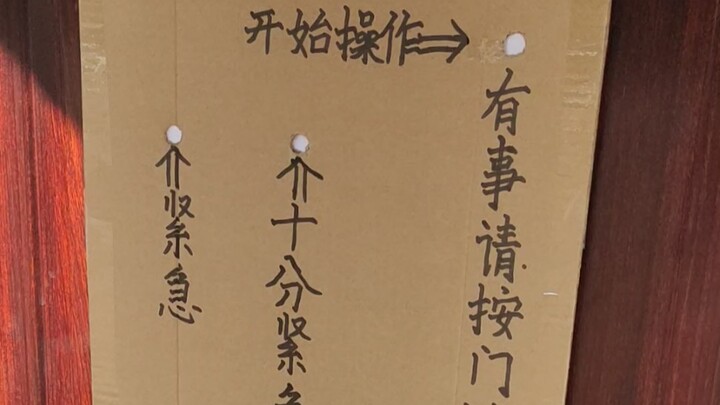 开始操作⇒
有事请按门
⇑十分紧急
⇑紧急